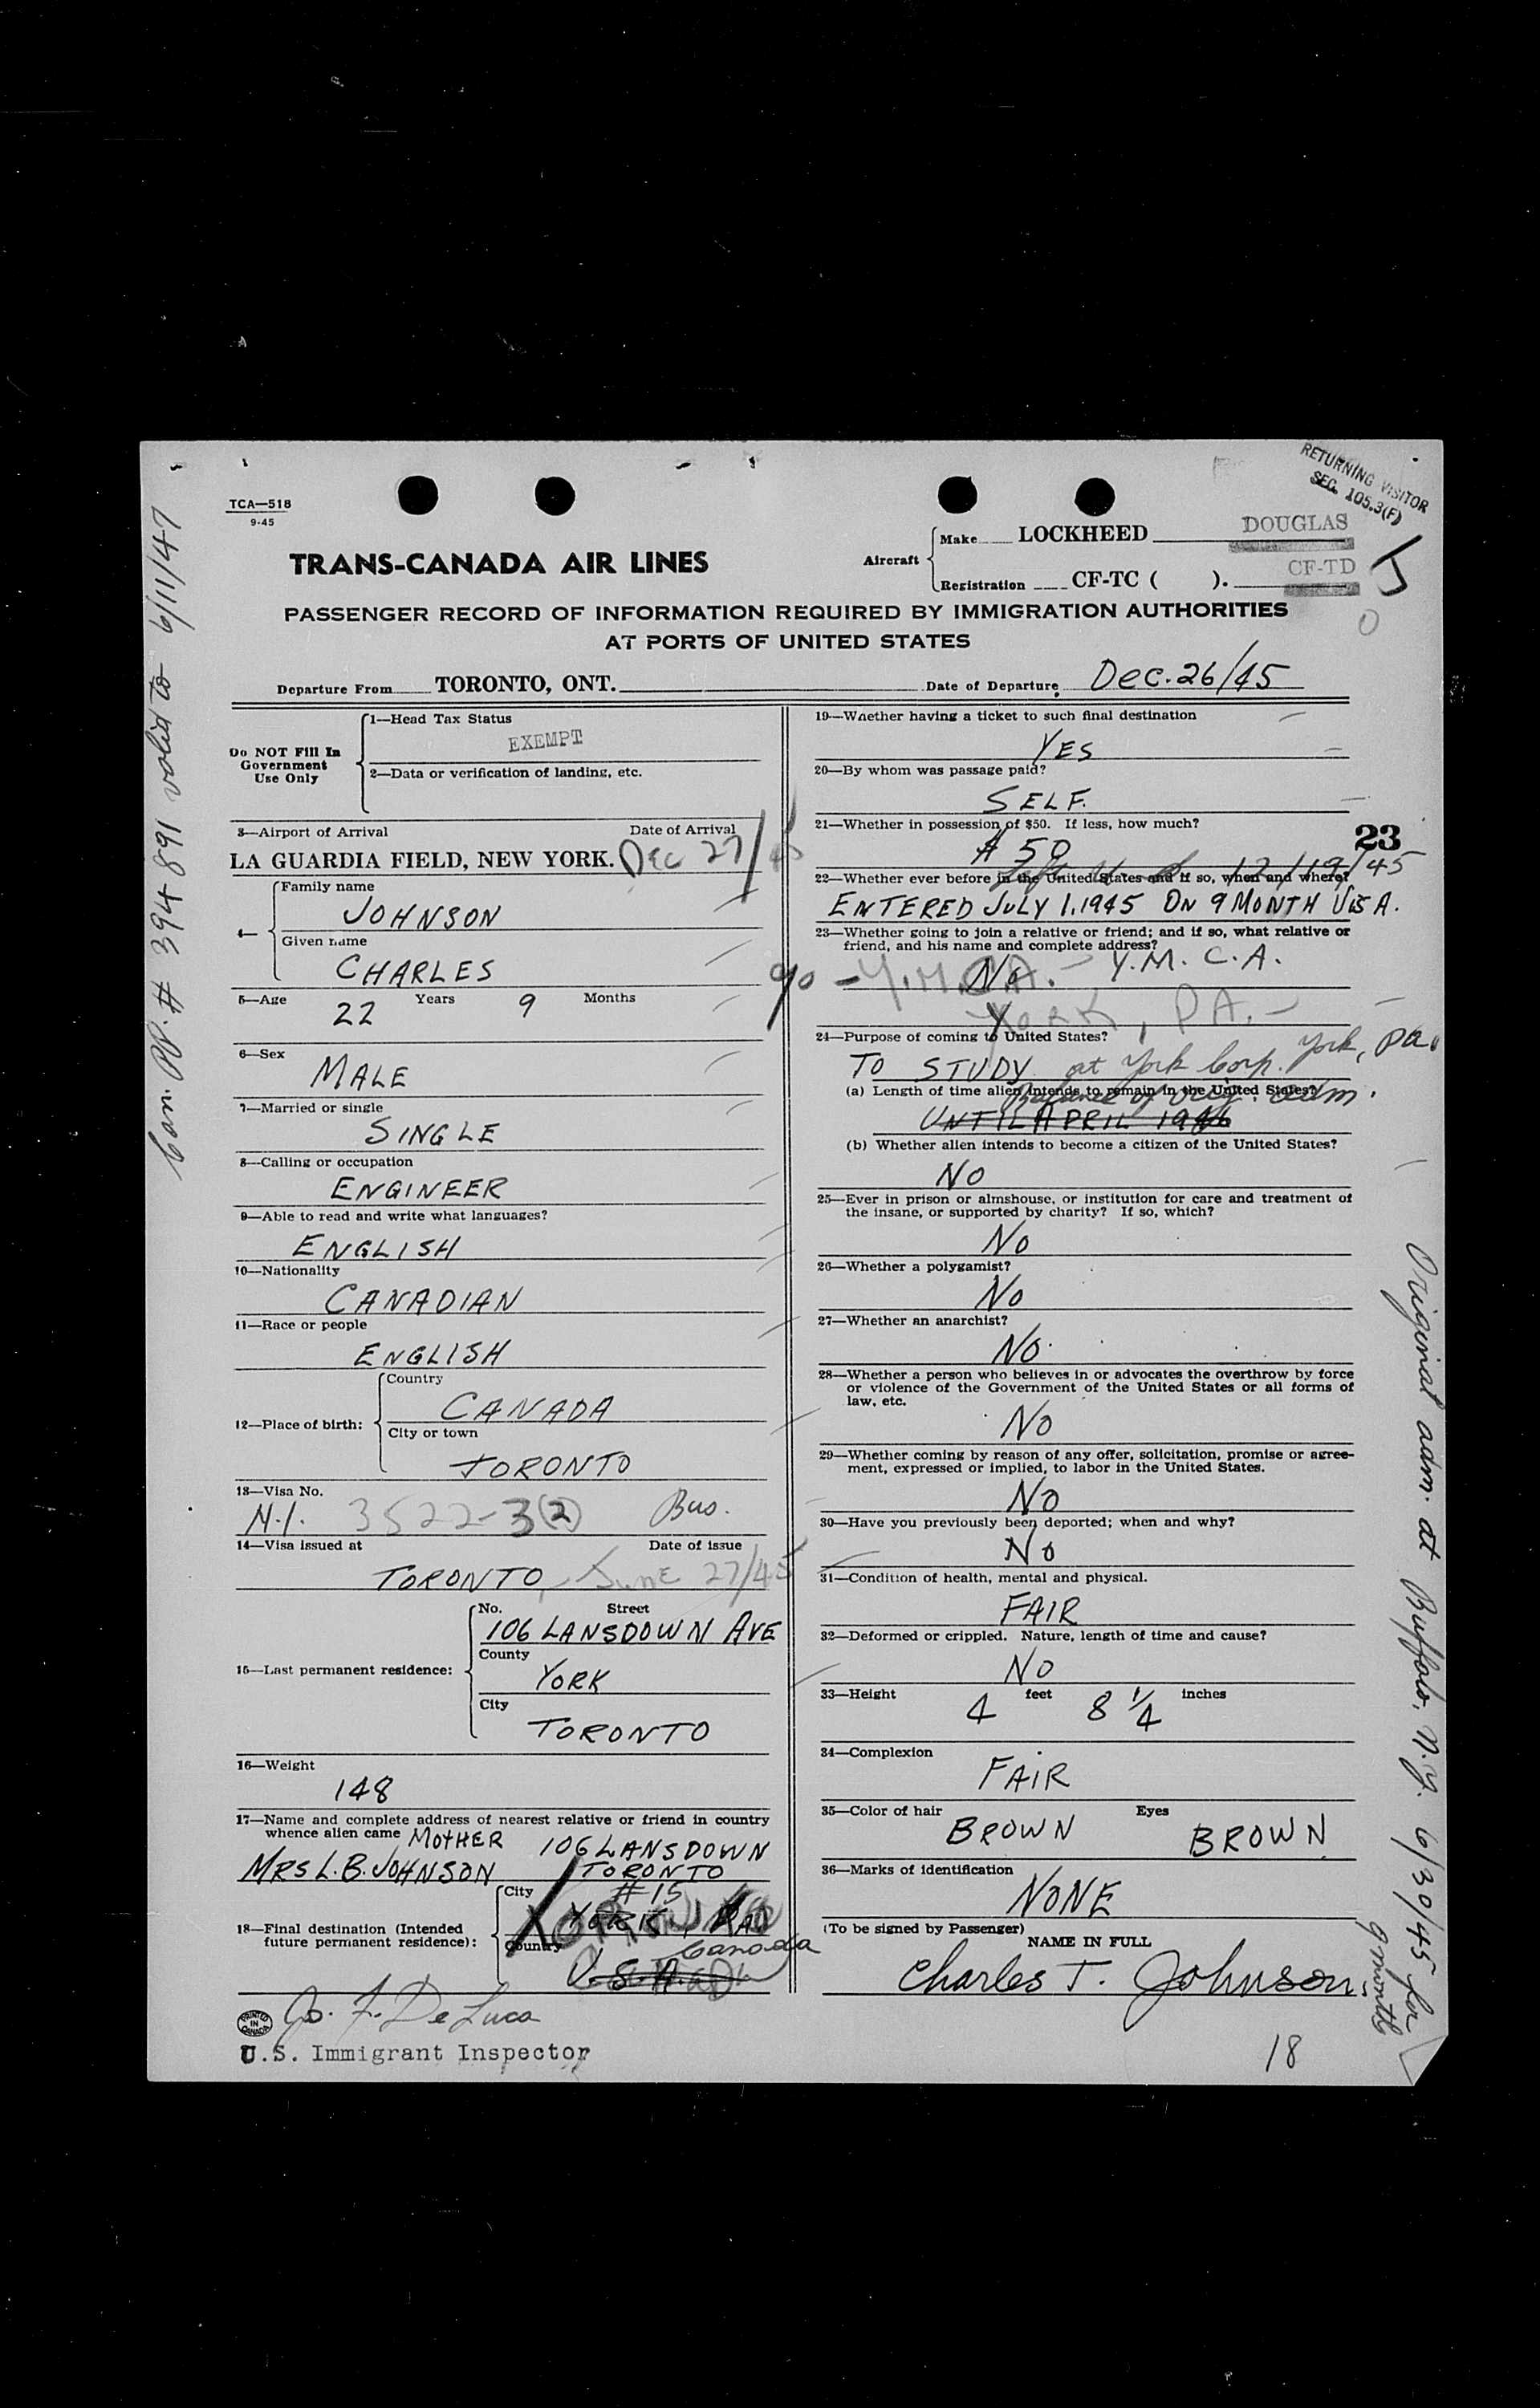 RETURNING VISITOR
SEC. 105.3(F)
TCA—518
9-45
TRANS-CANADA AIR LINES
Aircraft
Make LOCKHEED DOUGLAS
Registration CF-TC ( ). CF-TD
J
0
PASSENGER RECORD OF INFORMATION REQUIRED BY IMMIGRATION AUTHORITIES
AT PORTS OF UNITED STATES
Departure From TORONTO, ONT. Date of Departure Dec. 26/45
Can. PP. # 394891 valid to 6/11/47
Do NOT Fill In
Government
Use Only
1—Head Tax Status
EXEMPT
2—Data or verification of landing, etc.
3—Airport of Arrival Date of Arrival
LA GUARDIA FIELD, NEW YORK. DEC 27/45
4—
Family name
JOHNSON
Given name
CHARLES
5—Age 22 Years 9 Months
6—Sex
MALE
7—Married or single
SINGLE
8—Calling or occupation
ENGINEER
9—Able to read and write what languages?
ENGLISH
10—Nationality
CANADIAN
11—Race or people
ENGLISH
12—Place of birth:
Country
CANADA
City or town
TORONTO
13—Visa No.
N.I. 3522-3(2) Bus.
14—Visa issued at Date of issue
TORONTO, - JUNE 27/45
15—Last permanent residence:
No. Street
106 LANSDOWN AVE
County
YORK
City
TORONTO
16—Weight
148
17—Name and complete address of nearest relative or friend in country
whence alien came MOTHER 106 LANSDOWN
MRS L. B. JOHNSON TORONTO
18—Final destination (Intended
future permanent residence):
City # 15
YORK,
Country Canada
U.S.A.
PRINTED
IN
CANADA
De Luca
U.S. Immigrant Inspector
19—Whether having a ticket to such final destination
YES
20—By whom was passage paid?
SELF.
21—Whether in possession of $50. If less, how much?
$ 50
23
22—Whether ever before in the United States and if so, when and where?
Left U.S. 12/19/45
ENTERED JULY 1, 1945 ON 9 MONTH VISA.
23—Whether going to join a relative or friend; and if so, what relative or
friend, and his name and complete address?
No Y.M.C.A.
% - Y.M.C.A. -
YORK, PA. -
24—Purpose of coming to United States?
TO STUDY at York Corp. York, Pa.
(a) Length of time alien intends to remain in the United States?
Balance of orig. adm.
UNTIL APRIL 1946
(b) Whether alien intends to become a citizen of the United States?
NO
25—Ever in prison or almshouse, or institution for care and treatment of
the insane, or supported by charity? If so, which?
No
26—Whether a polygamist?
No
27—Whether an anarchist?
No.
28—Whether a person who believes in or advocates the overthrow by force
or violence of the Government of the United States or all forms of
law, etc.
No
29—Whether coming by reason of any offer, solicitation, promise or agree-
ment, expressed or implied, to labor in the United States.
No
30—Have you previously been deported; when and why?
No
31—Condition of health, mental and physical.
FAIR
32—Deformed or crippled. Nature, length of time and cause?
NO
33—Height 4 feet 8 1/4 inches
34—Complexion
FAIR
35—Color of hair Eyes
BROWN BROWN
36—Marks of identification
NONE
(To be signed by Passenger)
NAME IN FULL
Charles T. Johnson.
18
Original adm. at Buffalo, N.Y. 6/30/45 for
9 months